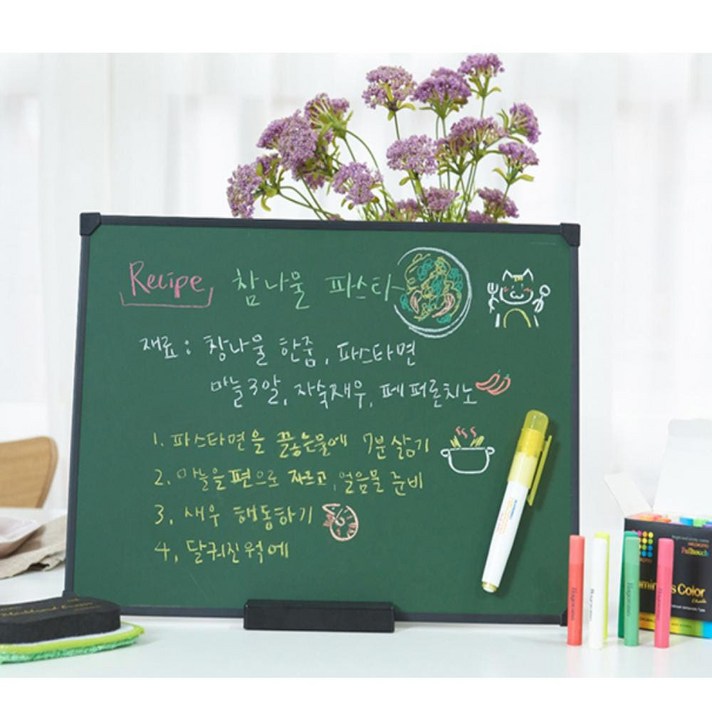 Recipe 참나물 파스타
재료 : 참나물 한줌, 파스타면
마늘3알, 자숙새우, 페퍼론치노
1. 파스타면을 끓는물에 7분 삶기
2. 마늘을 편으로 자르고, 얼음물 준비
3. 새우 해동하기
4. 달궈진 웍에